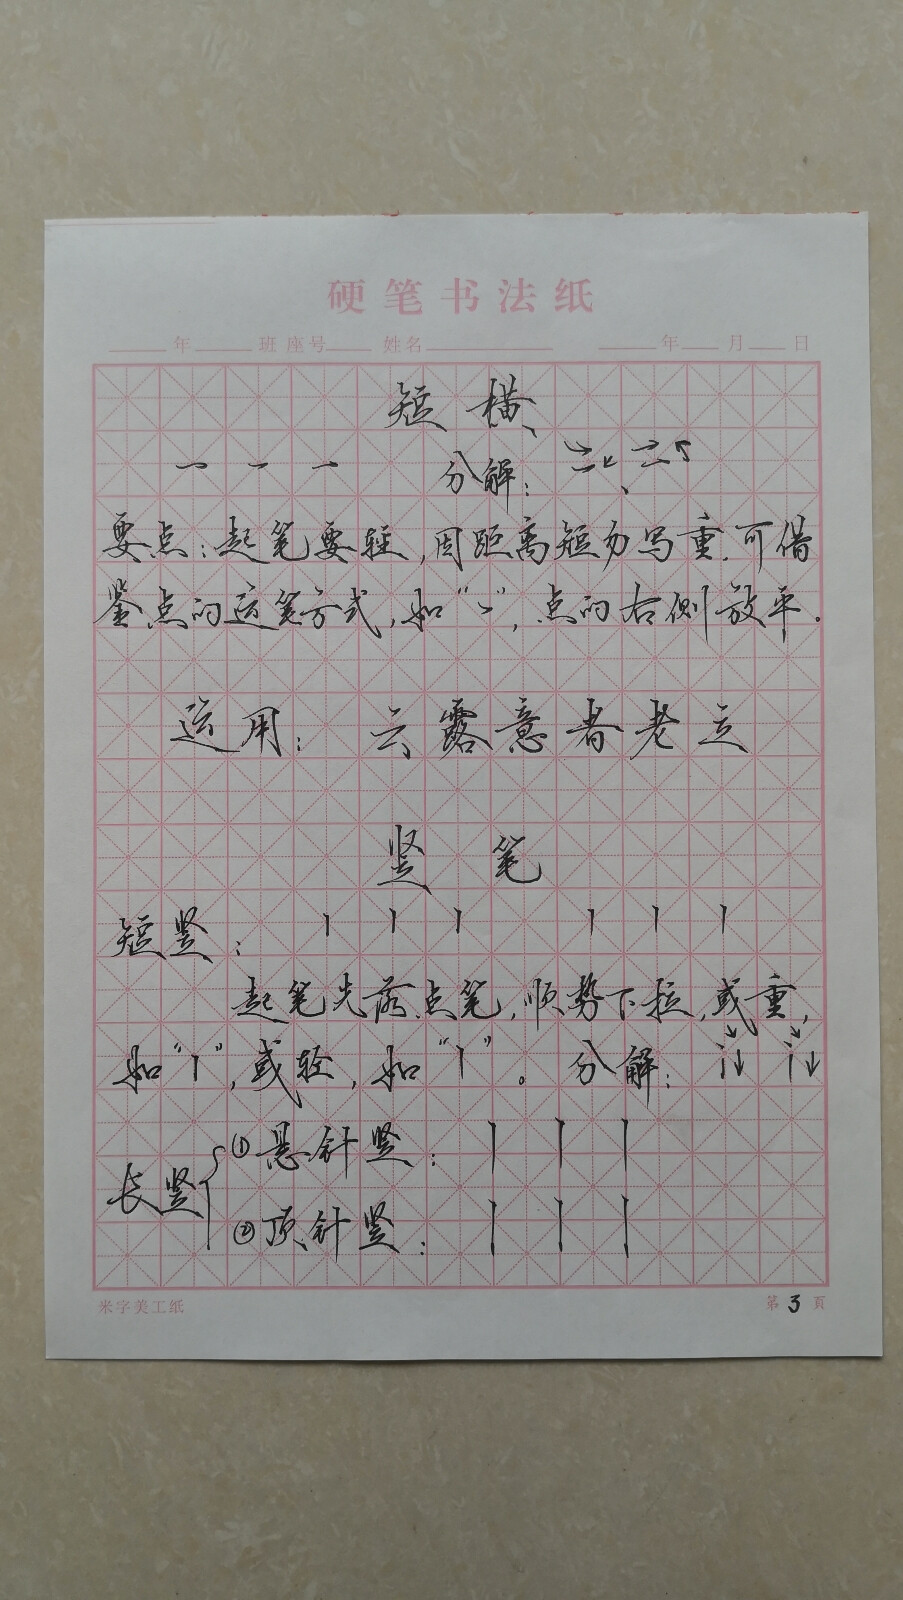 硬笔书法纸
年 班 座号 姓名 年 月 日
短横
一 一 一 分解：
要点：起笔要轻，因距离短勿写重.可借
鉴点的运笔方式，如“、”，点的右侧放平.
运用： 云露意者老立
竖笔
短竖： 丨 丨 丨 丨 丨 丨
起笔先落点笔，顺势下拉，或重，
如“丨”，或轻，如“丨”。分解：
长竖 ①悬针竖： 丨 丨 丨
②顶针竖： 丨 丨 丨
米字美工纸 第3頁